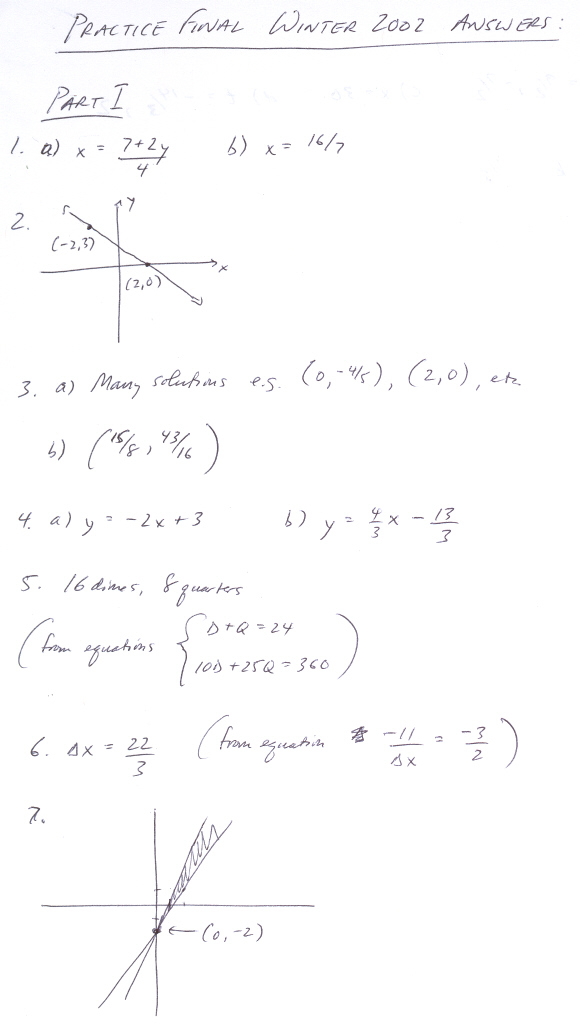 PRACTICE FINAL WINTER 2002 ANSWERS:
PART I
1. a) x = 7+2y/4 b) x = 16/7
2. y
(-2,3)
x
(2,0)
3. a) Many solutions e.g. (0,-4/5), (2,0), etc
b) (15/8, 43/16)
4. a) y = -2x+3 b) y = 4/3 x - 13/3
5. 16 dimes, 8 quarters
(from equations { D+Q = 24
10D+25Q = 360 )
6. Δx = 22/3 (from equation -11/Δx = -3/2)
7.
(0,-2)